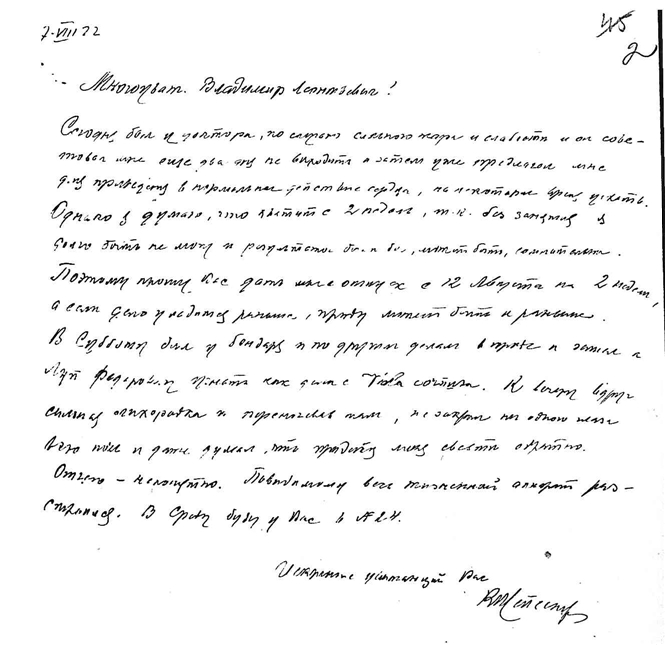 7-VIII 22
45
2
Многоуваж. Владимир Леонтьевич!
Сегодня был у доктора, по случаю сильного жара и слабости и он сове-
товал мне еще два дня не выходить а затем уже предлагал мне
для приведения в нормальное действие сердца, на некоторое время уехать.
Однако я думаю, что хватит с 2 недель, т.к. без занятия я
долго быть не могу и результат был бы, может быть, сомнителен.
Поэтому прошу Вас дать мне отпуск с 12 Августа на 2 недели,
а если дело уладится раньше, приеду может быть и раньше.
В Субботу был у Бондарь и по другим делам в и затем к
Федоровичу узнать как дела с. К вечеру вдруг
сильная лихорадка и переночевав там, не закрыл ни одного глаза
всю ночь и даже думал, что придется меня свезти обратно.
Отчего – неизвестно. Повидимому весь жизненный аппарат рас-
строился. В Среду буду у Вас в
Искренно уважающий Вас